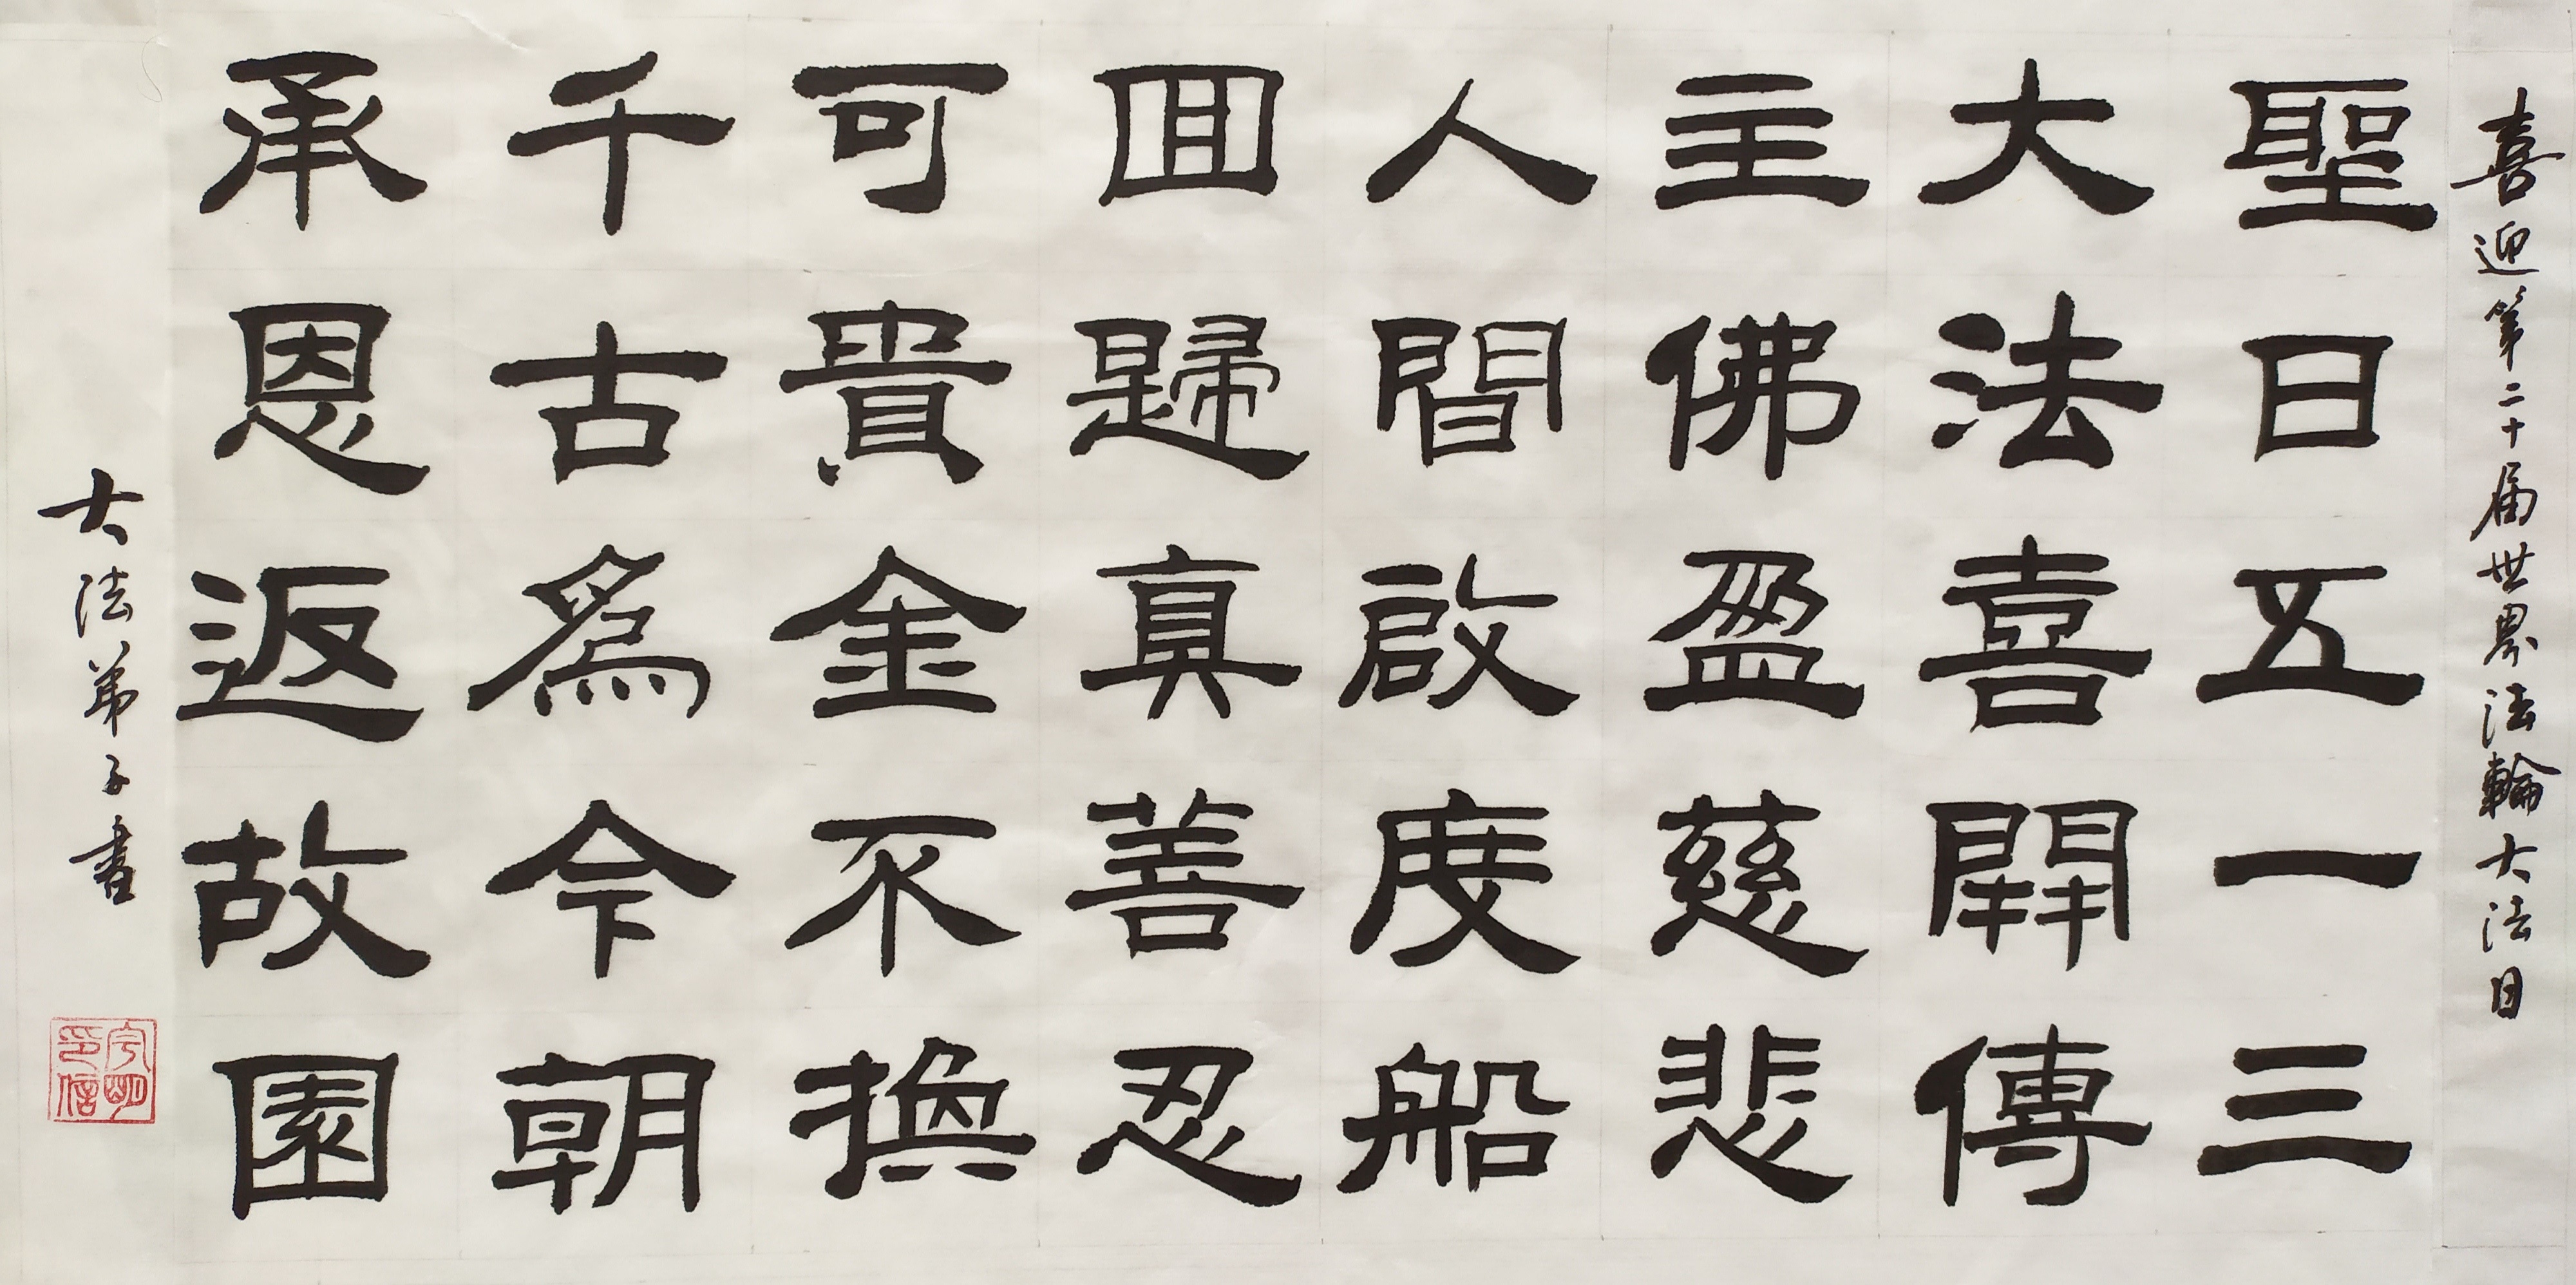 喜迎第二十届世界法輪大法日
聖日五一三
大法喜開傳
主佛盈慈悲
人間啟度船
回歸真善忍
可貴金不換
千古為今朝
承恩返故園
大法弟子書